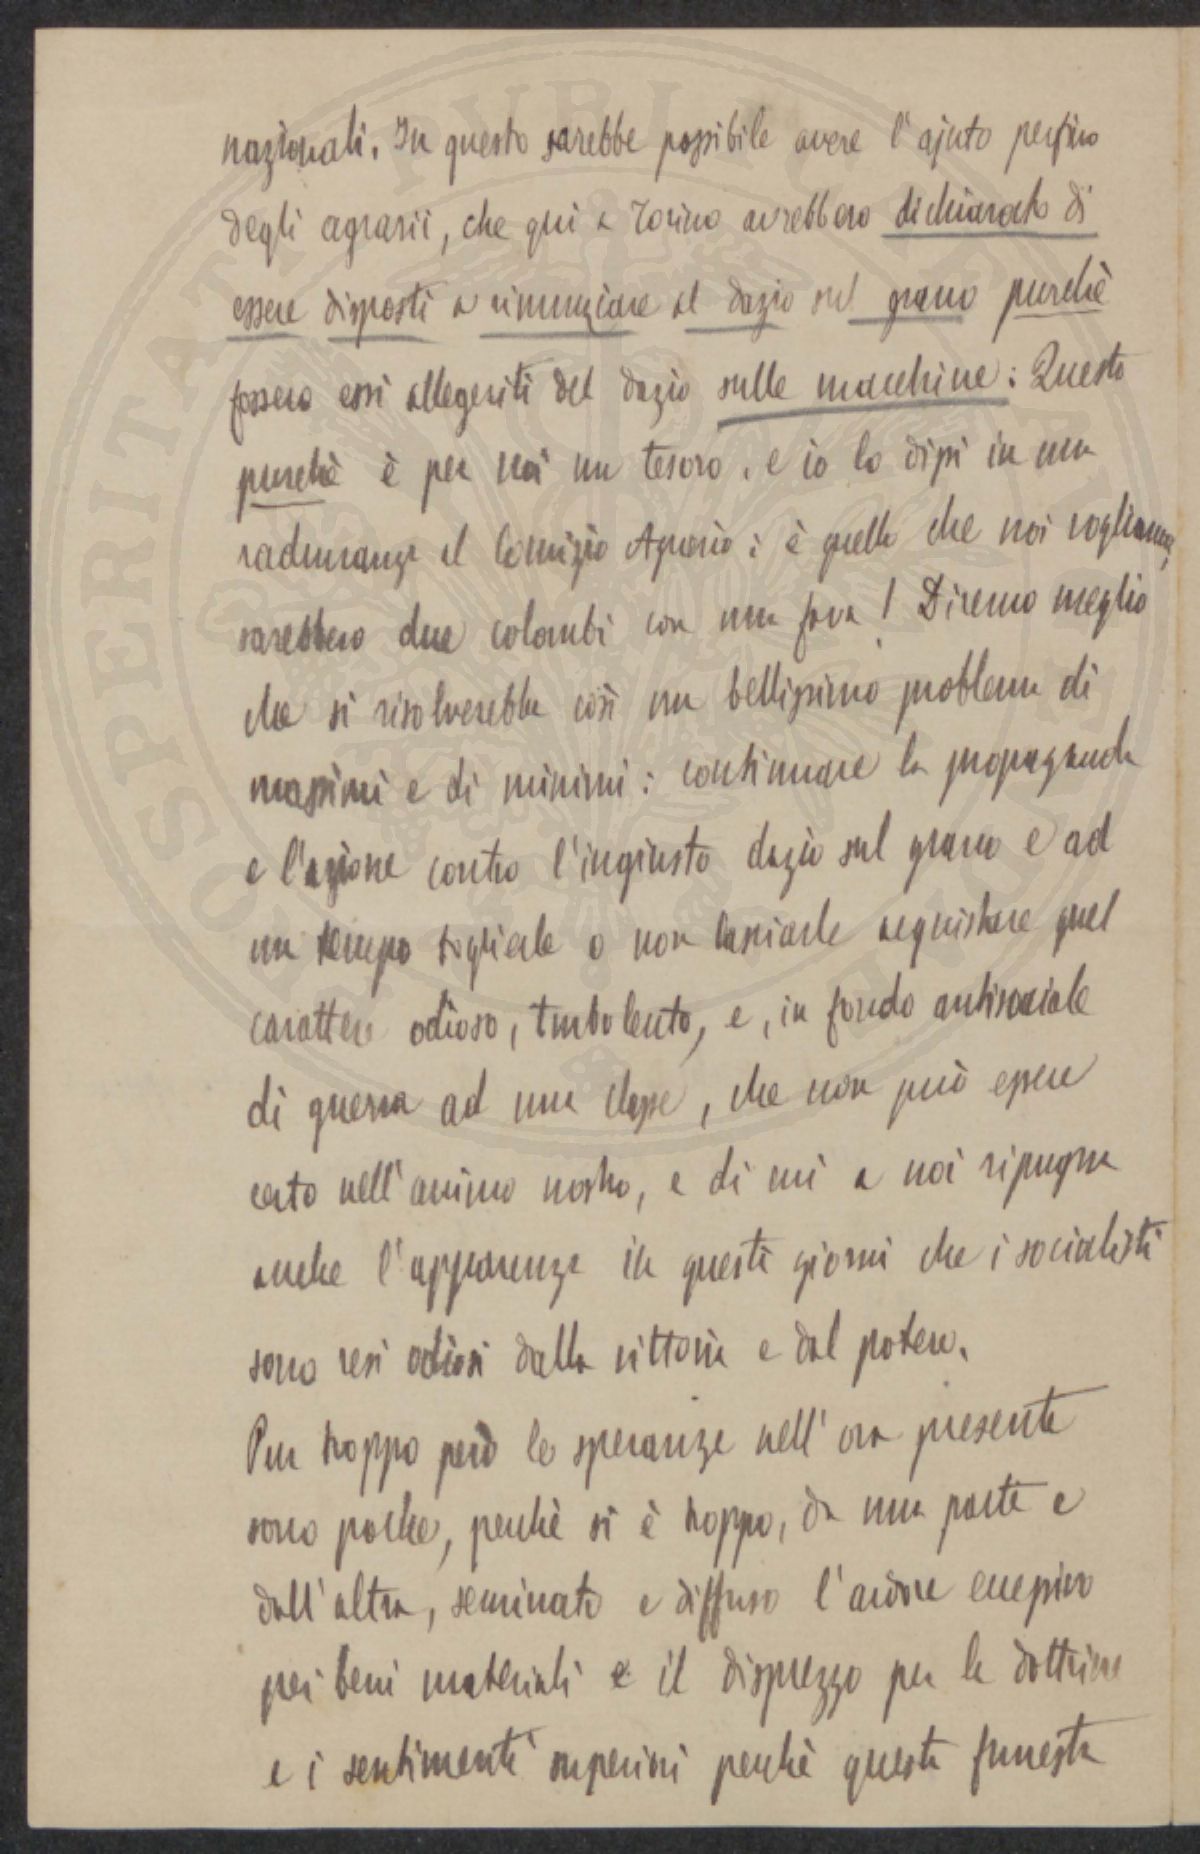 nazionali. In questo sarebbe possibile avere l'ajuto perfino
degli agrarii, che qui a Torino avrebbero dichiarato di
essere disposti a rinunziare al dazio sul grano purchè
fossero essi allegeriti del dazio sulle macchine: Questo
purchè è per noi un tesoro, e io lo dissi in una
radunanza al Comizio Agrario: è quello che noi vogliamo,
sarebbero due colombi con una fava! Diremo meglio
che si risolverebbe così un bellissimo problema di
massimi e di minimi: continuare la propaganda
e l'azione contro l'ingiusto dazio sul grano e ad
un tempo togliele o non lasciarle acquistare quel
carattere odioso, turbolento, e, in fondo antisociale
di guerra ad una classe, che non può essere
certo nell'animo nostro, e di cui a noi ripugna
anche l'apparenza in questi giorni che i socialisti
sono resi odiosi dalla vittoria e dal potere.
Pur troppo però le speranze nell'ora presente
sono poche, perchè si è troppo, da una parte e
dall'altra, seminato e diffuso l'ardore eccessivo
pei beni materiali e il disprezzo per le dottrine
e i sentimenti superiori perchè questa funesta